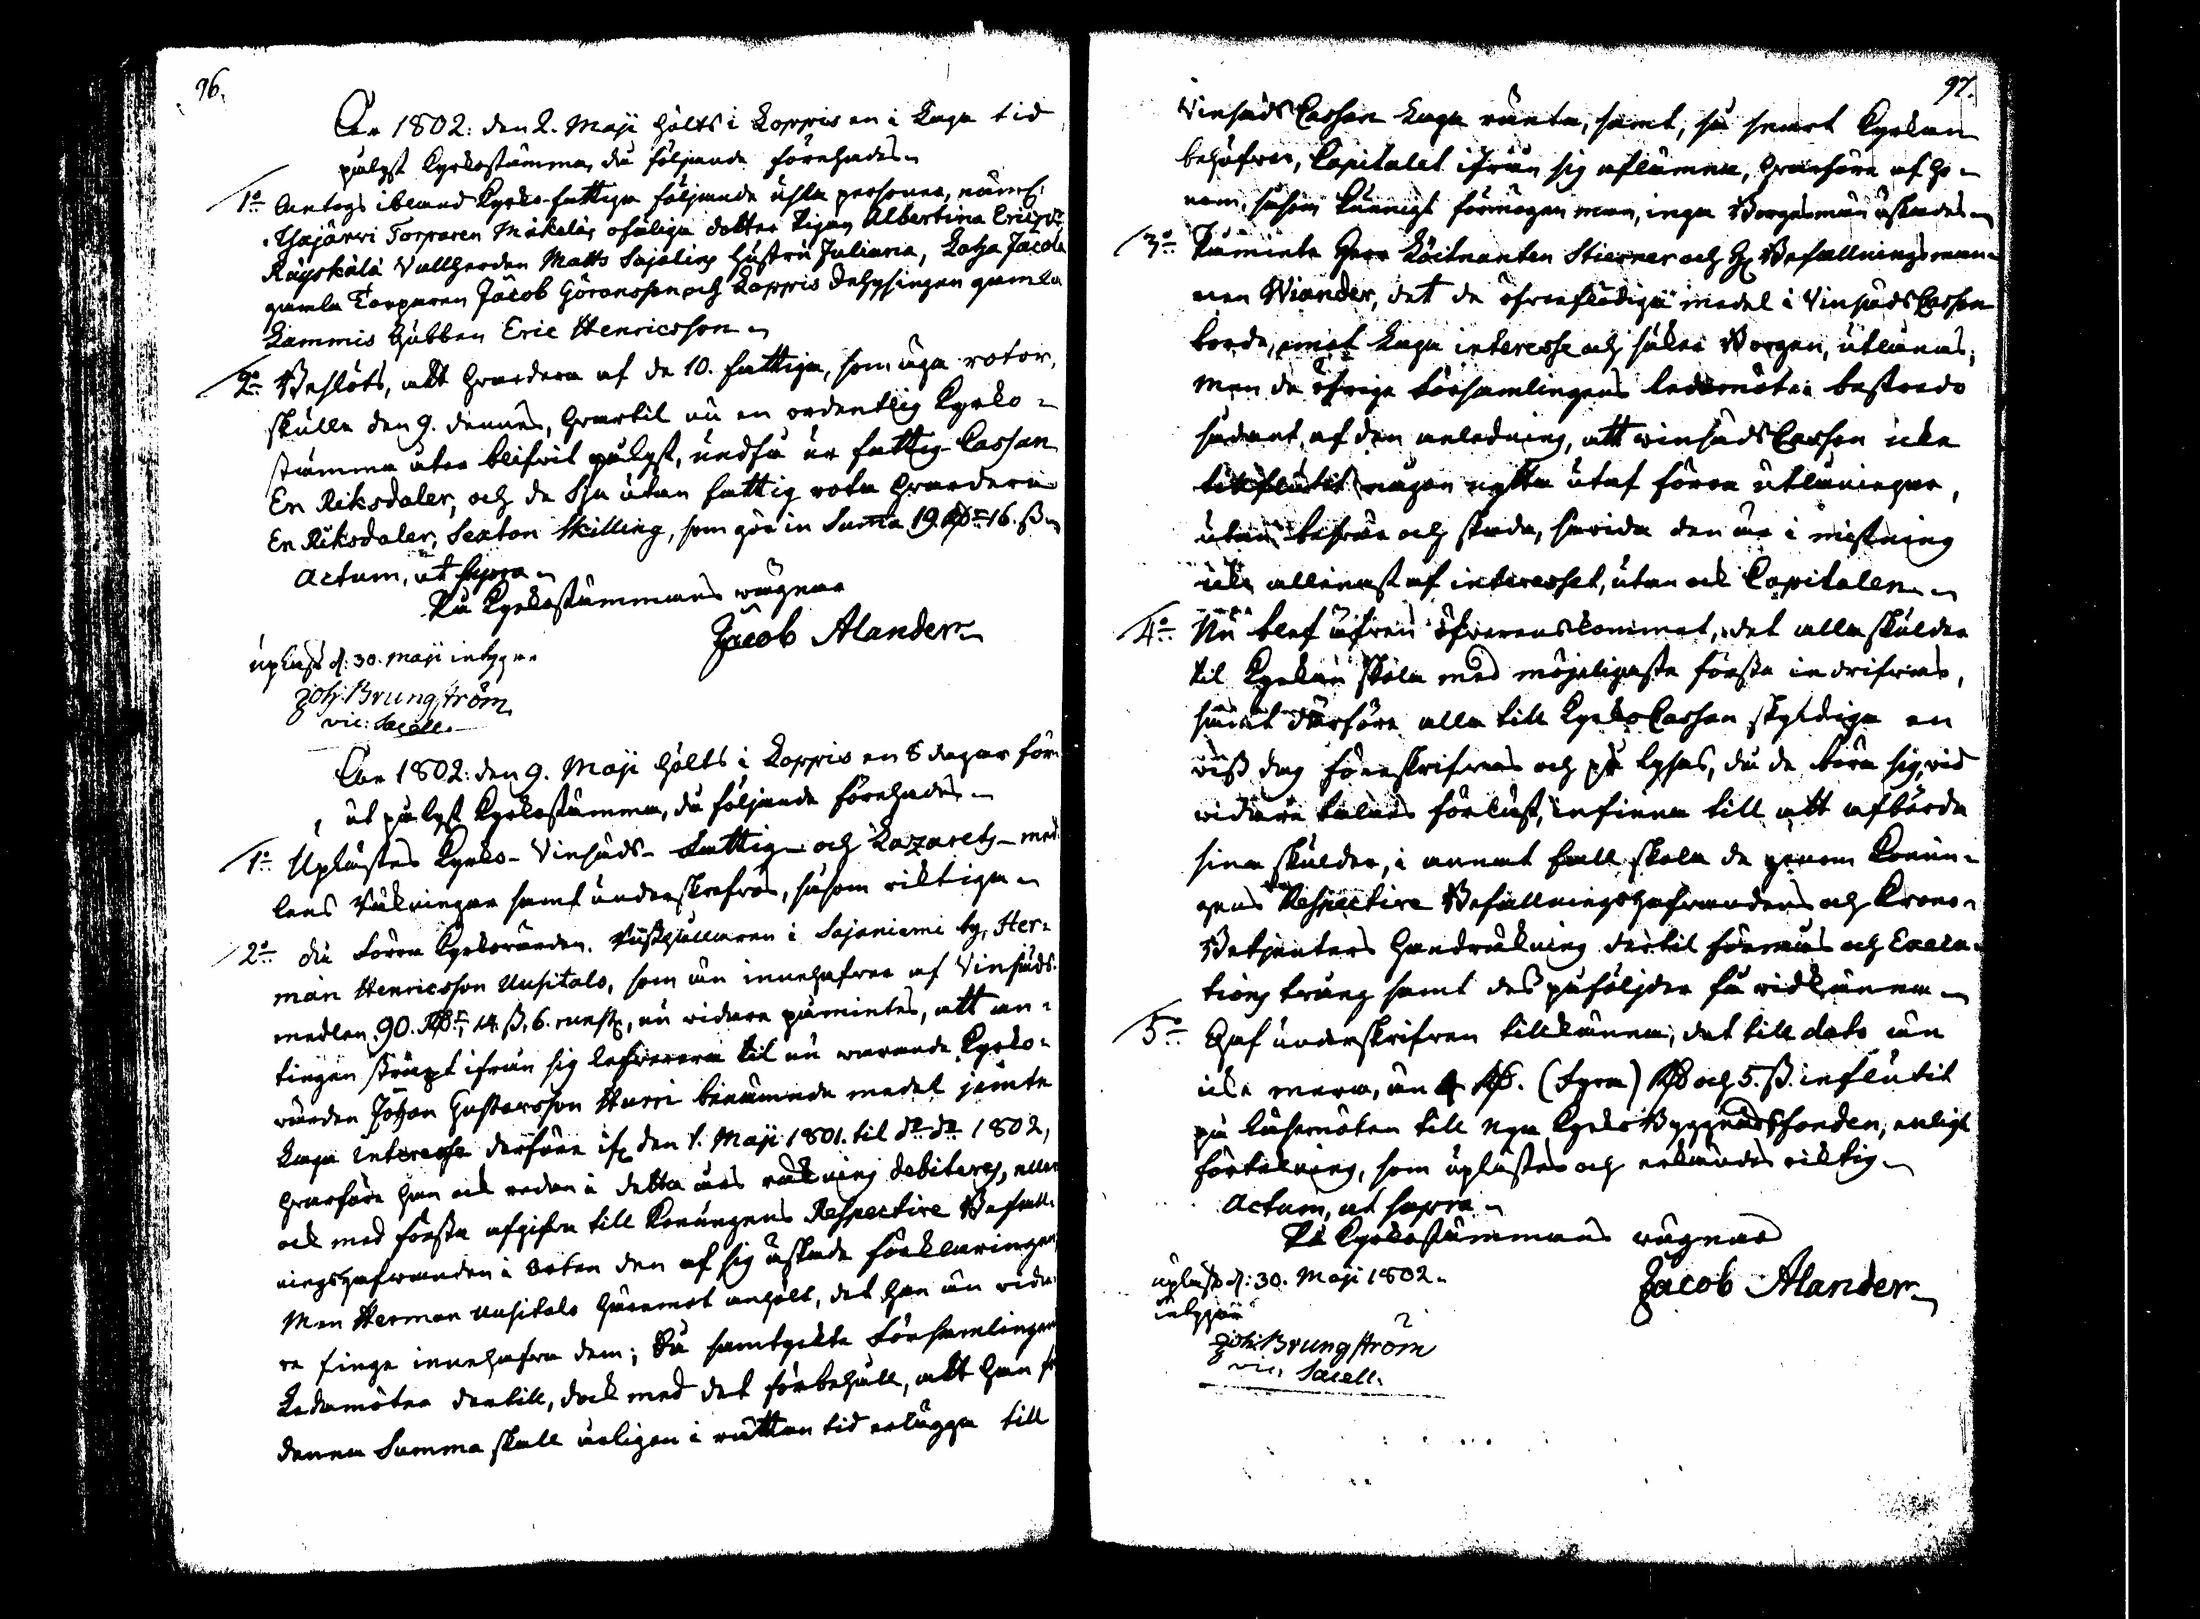 96.
År 1802: den 2. Maji hölts i Loppis en i Laga tid
pålyst Kyrkostämma, då följande förehades
1o Antogs ibland Kyrko-fattiga följande usla personer, näml:
Torparen Mäkeläs ofäliga dotter Pigan Albertina Ericsdr
Räyskälä Vallherden Matts Sajalins hustru Juliana, Jacob
gamla Torparen Jacob Göransson och Loppis gamla
Lammis Gubben Eric Henricsson
2o Beslöts, att hvardera af de 10. fattiga, som äga rotor,
skulle den 9. dennes, hvartil nu en ordentlig Kyrko-
stämma åter blifvit pålyst, undfå ur fattig-Cassan
En Riksdaler, och de Sju utan fattig rota hvardera
En Riksdaler, Sexton Skilling, som gör in Suma 19. Rdr 16. ß
Actum, ut supra
På Kyrkostämmans vägnar
Jacob Alander
upläst d: 30. Maji intygar
Joh. Brungström
vic: Sacell.
År 1802: den 9. Maji hölts i Loppis en 8 dagar för-
ut pålyst Kyrkostämma, då följande förehades
1o Uplästes Kyrko- Vinsäds- Fattig- och Lazaretz- med-
lens Räkningar samt underskrefvos, såsom riktiga
2o Då Förra Kyrkovärden, Rusthållaren i Sajaniemi by, Her-
man Henricsson Uusitalo, som än innehafver af Vinsäds-
medlen 90. Rdr, 14. ß, 6. runst, nu vidare påmintes, att an-
tingen straxt ifrån sig lefverera til nu varande Kyrko-
värden Johan Gustavsson Harri benämnda medel jämte
Laga interesse derföre if. den 1. Maji 1801. til do do 1802,
hvarföre han ock redan i detta års räkning debiteras, eller
ock med första afgifva till Konungens Respective Befall-
ningshafvanden i Orten den af sig äskade förklaringen,
Men Herman Uusitalo häremot anhöll, det han än vida-
re finge innehafva dem; Så samtyckte Församlingens
Ledamöter dertill, dock med det förbehåll, att han för
denna Summa skall årligen i rättan tid erlägga till
97.
Vinsäds Cassan Laga ränta, samt, så snart Kyrkan
behöfver, Capitalet ifrån sig aflämna, hvarföre af ho-
nom, såsom kunnigt förmögen man, inga Borgesmän äskades
3o Påminte Herr Löitnanten Stierner och H: Befallningsman-
nen Wiander, det de öfverflödiga medel i Vinsäds Cassan
borde, emot Laga interesse och säker Borgen, utlånas;
Men de öfrige Församlingens Ledamöter bestredo
sådant, af den anledning, att vinsäds Cassan icke
tillflutit någon nytta utaf förra utlåningar,
utan besvär och skada, hvarida den är i mistning
icke allenast af interesset, utan ock Capitalen
4o Nu blef äfven öfverenskommet, det alla skulder
til Kyrkan skola med möjeligaste första indrifvas,
samt därföre alla till Kyrko Cassan skyldiga en
viss dag föreskrifvas och pålysas, då de böra sig, vid
vidare talans förlust, infinna till att afbörda
sina skulder, i annat fall skola de genom Konun-
gens Respective Befallningshafvandens och Krono-
Betjenters Handräckning dertil förmås och Execu-
tions tvång samt des påföljder få vidkännas
5o Gaf underskrifven tillkänna, det till dato än
icke mera, än 4 Rdr. (Fyra) Rdr och 5. ß. influtit
på Läsemöten till nya Kyrko Byggnads fonden, enligt
förtekning, som uplästes och erkändes riktig
Actum, ut supra
På Kyrkostämmans vägnar
Jacob Alander
upläst d: 30. Maji 1802.
intygar
Joh: Brungström
vic. Sacell.